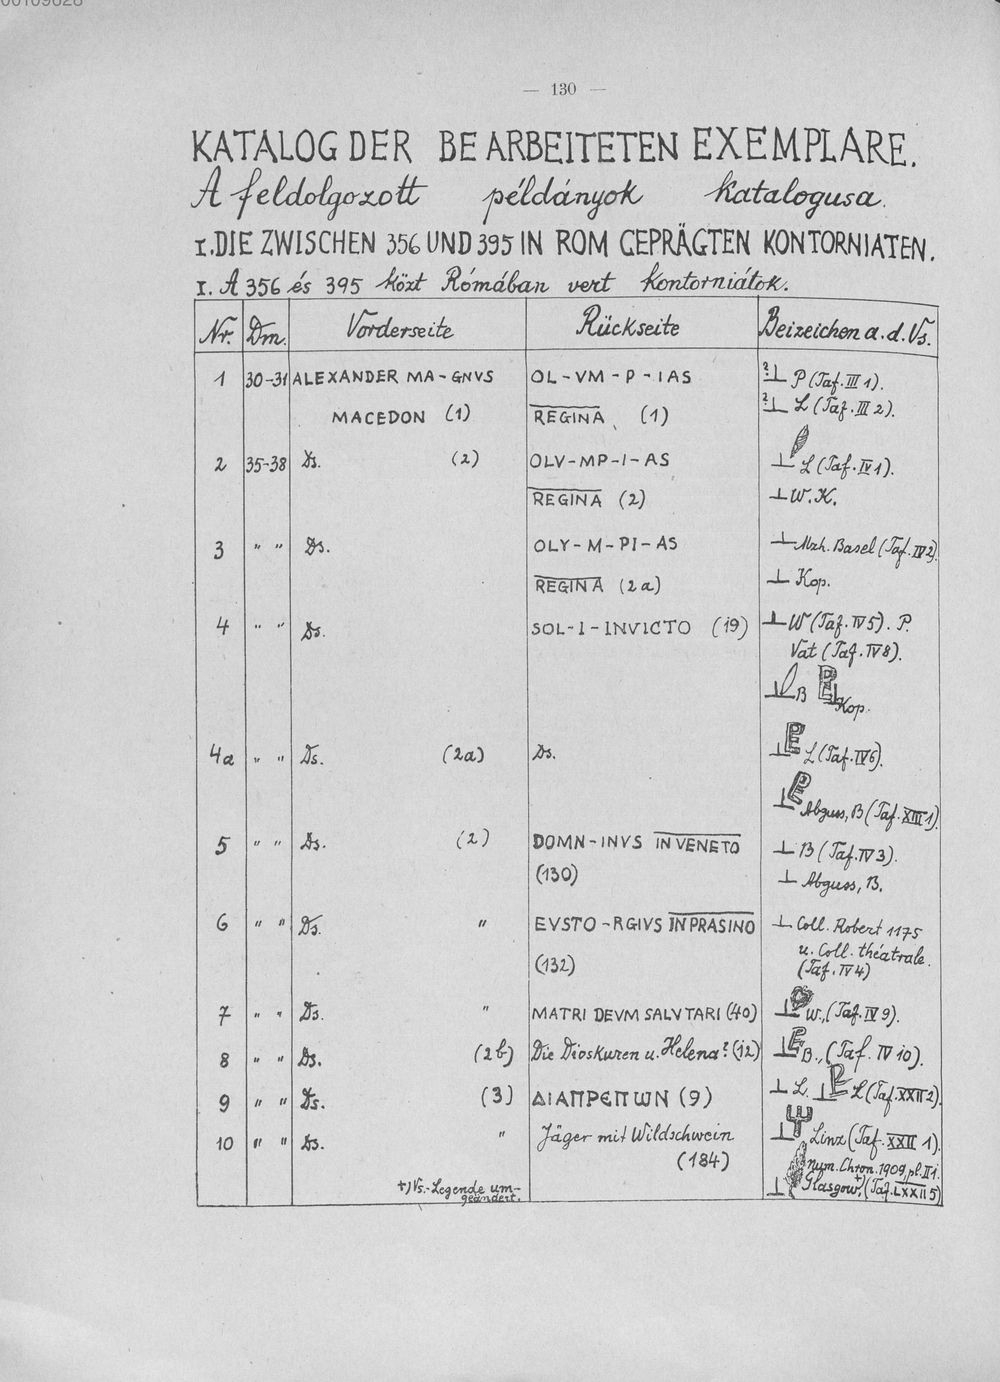 00109628
— 130 —
KATALOG DER BEARBEITETEN EXEMPLARE.
A feldolgozott példányok katalogusa.
I. DIE ZWISCHEN 356 UND 395 IN ROM GEPRÄGTEN KONTORNIATEN.
I. A 356 és 395 közt Rómában vert kontorniátok.
Nr. Dm. Vorderseite Rückseite Beizeichen a. d. Vs.
1 30-31 ALEXANDER MA-GNVS OL-VM-P-IAS ?⊥ P (Taf. III 1).
MACEDON (1) REGINA (1) ?⊥ L (Taf. III 2).
2 35-38 Ds. (2) OLV-MP-I-AS ⊥ L (Taf. IV 1).
REGINA (2) ⊥ W. K.
3 " " Ds. OLY-M-PI-AS ⊥ Mzh. Basel (Taf. IV 2).
REGINA (2a) ⊥ Kop.
4 " " Ds. SOL-I-INVICTO (19) ⊥ W (Taf. IV 5). P.
Vat (Taf. IV 8).
⊥ B ⊥ Kop.
4a " " Ds. (2a) Ds. ⊥ L (Taf. IV 6).
⊥ Abguss, B (Taf. XIII 1).
5 " " Ds. (2) DOMN-INVS IN VENETO ⊥ B (Taf. IV 3).
(130) ⊥ Abguss, B.
6 " " Ds. " EVSTO-RGIVS IN PRASINO ⊥ Coll. Robert 1175
(132) u. Coll. théatrale.
(Taf. IV 4)
7 " " Ds. " MATRI DEVM SALVTARI (40) ⊥ W., (Taf. IV 9).
8 " " Ds. (2b) Die Dioskuren u. Helena? (12) ⊥ B., (Taf. IV 10).
9 " " Ds. (3) ΔΙΑΠΡЄΠѠΝ (9) ⊥ L. ⊥ L (Taf. XXII 2).
10 " " Ds. " Jäger mit Wildschwein ⊥ Linz (Taf. XXII 1).
(184) Num. Chron. 1909, pl. II 1.
+) Vs.-Legende um- ⊥ Glasgow+), (Taf. LXXII 5)
geändert.